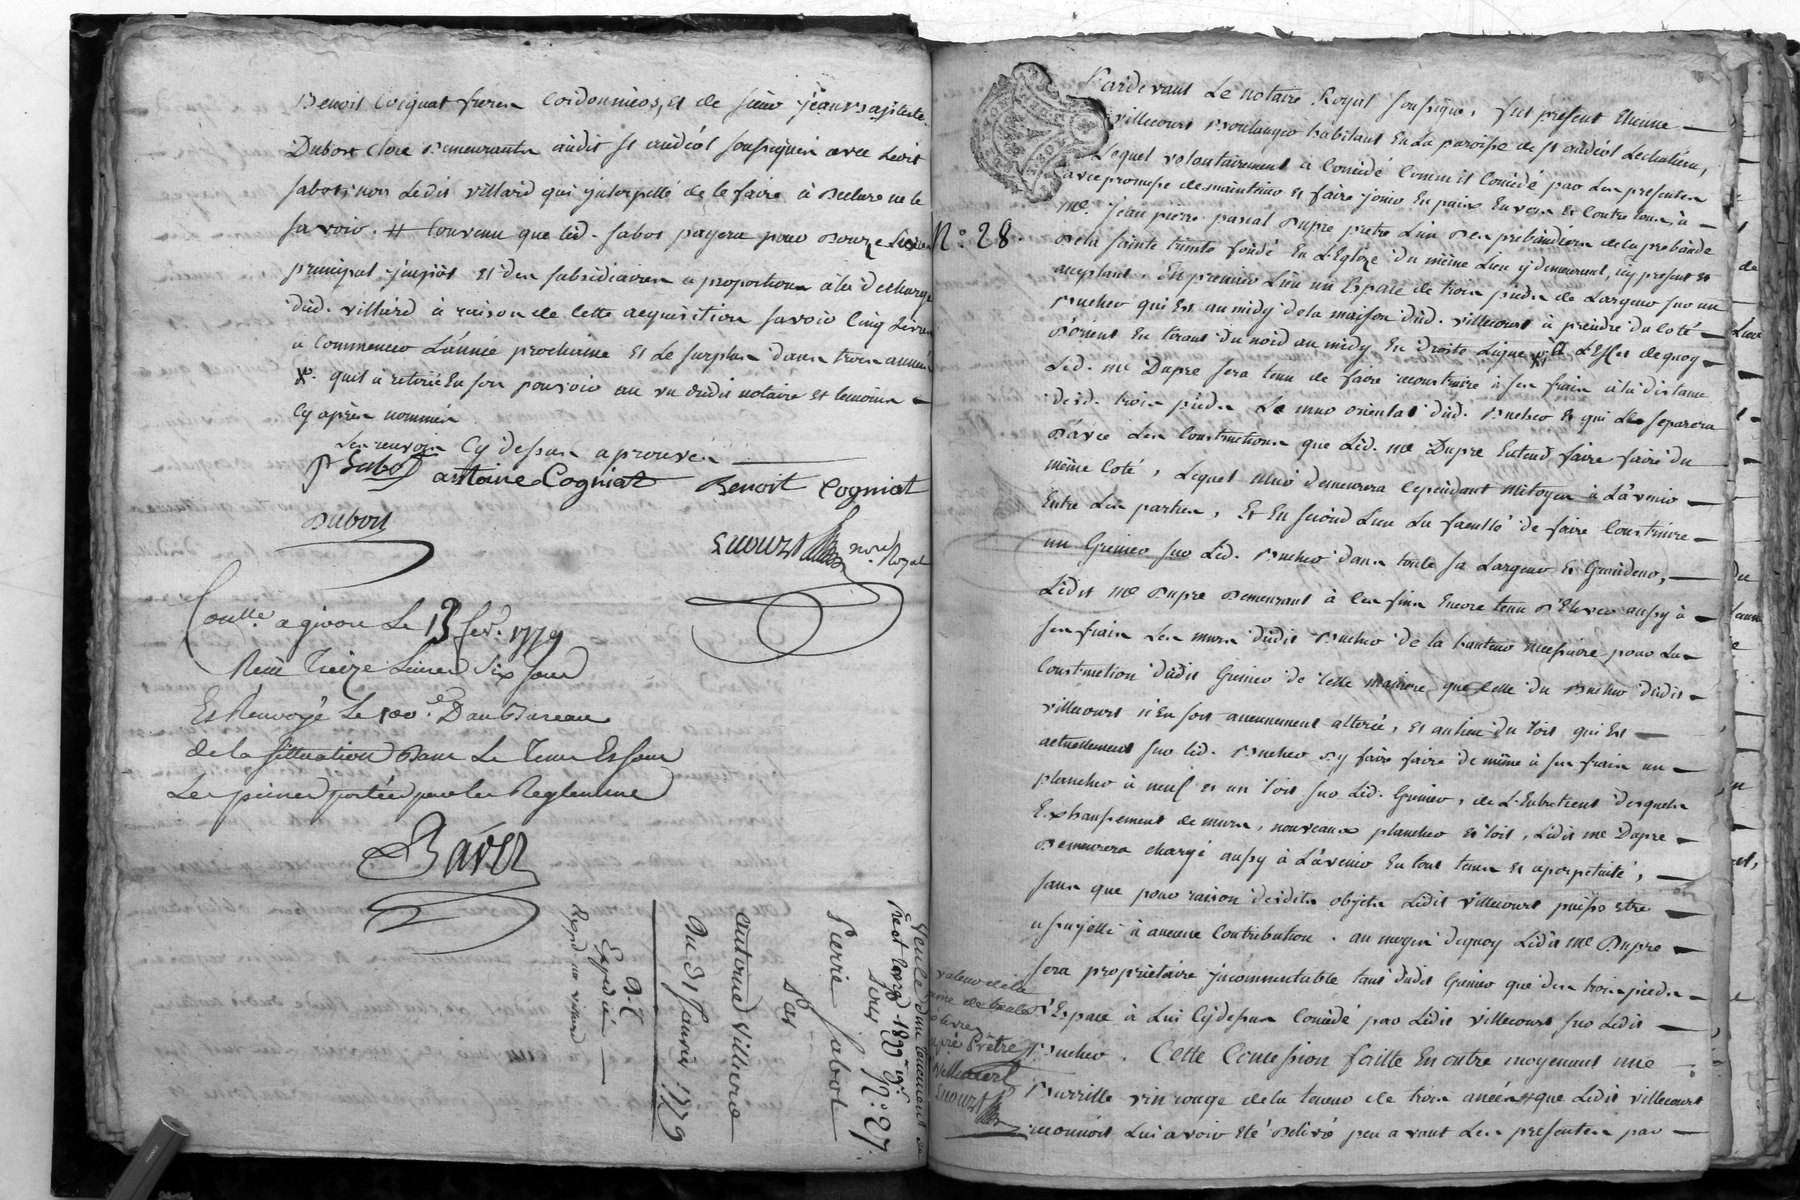 Benoit Coignat freres Cordonniers, et de sieur jean Baptiste
Dubost Clerc Demeurants audit St andéol soussignés avec Ledit
sabot, non Ledit villard qui jnterpellé de le faire à Declaré ne le
savoir. # Convenu que led. sabot payera pour Douze Livres
principal jmpôt et des subsidiaires a proportion à la decharge
dud. villiard à raison de cette acquisition savoir Cinq Livres
a Commencer L'année prochaine et Le surplus dans trois années
quil à retiré En son pouvoir au vu dudit notaire et temoins
Cy après nommés
Les renvois Cy dessus aprouvés
P Sabot antoine Cogniat Benoit Cogniat
Dubost
nore. Royal
Conllé. a givors Le 13 fev. 1779
Reçu Treize Livres Six sous
Et Renvoyé Le Au Bureau
de la sittuation Dans Le Tems Et sous
Les peines portées par les Reglements
Bavet
Vente d'un tenement de
fonds
N: 27.
Pierre Sabot
Par
antoine Villiard
Du: 31 Janvier 1779
Expedié
N.° 28.
Pardevant Le notaire Royal soussigné, fut présent Etienne
Villecourt Boulanger habitant En La paroisse de St andéol Lechateau,
Lequel volontairement à Concédé Comm'il Concéde par Les presentes
avec promesse de maintenir et faire jouir En paix Envers et Contre tous à
me. Jean pierre pascal Dupré prêtre L'un Des prébandiers de la prebande
De la sainte trinité fondé En L'Eglize du même Lieu y demeurant, icy present et
aceptant. En premier Lieu un Espace de trois pieds de Largeur sur un
Bucher qui Est au midy de la maison dud. Villecourt à prendre du Coté
D'orient En tirant du nord au midy En Droite Ligne à L'Effet de quoy
Led. me Dupré sera tenu de faire reconstruire à ses frais à la distance
desd. trois pieds Le mur oriental dud. Bucher et qui Le separera
D'avec Les Constructions que Led. me Dupré Entend faire faire du
même Coté, Lequel mur demeurera Cependant mitoyen à L'avenir
Entre Les parties, Et En second Lieu La faculté de faire Construire
un Grenier sur Led. Bucher dans toute sa Largeur et Grandeur,
Ledit me Dupré Demeurant à Ces fins Encore tenu D'Elever aussy à
ses frais Les murs dudit Bucher de la hauteur necessaire pour La
Construction dudit Grenier de telle maniere que Celle du Bucher dudit
Villecourt n'En soit aucunement alterée, et au lieu du toit qui Est
actuellement sur led. Bucher d'y faire faire de même à ses frais un
plancher à neuf et un toit sur Led. Grenier, de L'Entretient desquels
Exhaussement de murs, nouveaux plancher et toit, Ledit me Dupré
Demeurera chargé aussy à L'avenir En tout tems et a perpetuité,
sans que pour raison desdits objets Ledit Villecourt puisse etre
assujetti à aucune Contribution. au moyen dequoy Ledit me Dupré
sera propriétaire jncommutable tant dudit Grenier que des trois pieds
D'Espace à Lui Cydessus Concédé par Ledit Villecourt sur Ledit
Bucher. Cette Concession faitte En outre moyenant une
Barrille vin rouge de la teneur de trois anées # que Ledit Villecourt
reconnoit Lui avoir Eté Delivré peu avant Les presentes par
# valeur de la
livres
Dupré Prêtre
Villecourt